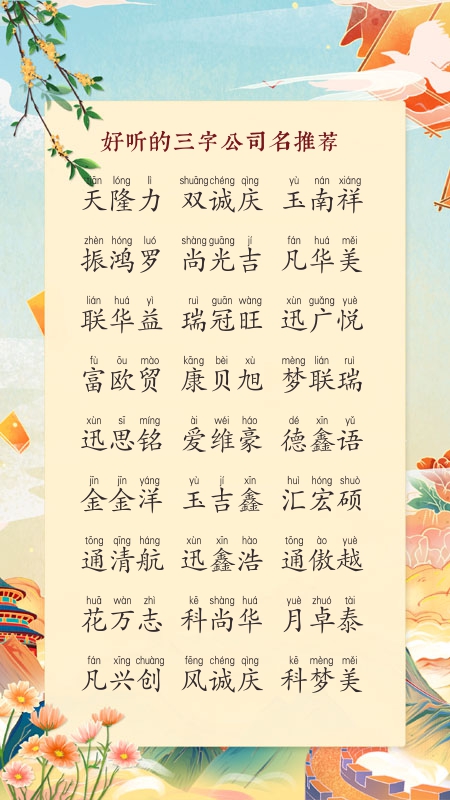 好听的三字公司名推荐
tiān lóng lì shuāng chéng qìng yù nán xiáng
天隆力 双诚庆 玉南祥
zhèn hóng luó shàng guāng jí fán huá měi
振鸿罗 尚光吉 凡华美
lián huá yì ruì guān wàng xùn guǎng yuè
联华益 瑞冠旺 迅广悦
fù ōu mào kāng bèi xù mèng lián ruì
富欧贸 康贝旭 梦联瑞
xùn sī míng ài wéi háo dé xīn yǔ
迅思铭 爱维豪 德鑫语
jīn jīn yáng yù jí xīn huì hóng shuò
金金洋 玉吉鑫 汇宏硕
tōng qīng háng xùn xīn hào tōng ào yuè
通清航 迅鑫浩 通傲越
huā wàn zhì kē shàng huá yuè zhuó tài
花万志 科尚华 月卓泰
fán xīng chuàng fēng chéng qìng kē mèng měi
凡兴创 风诚庆 科梦美